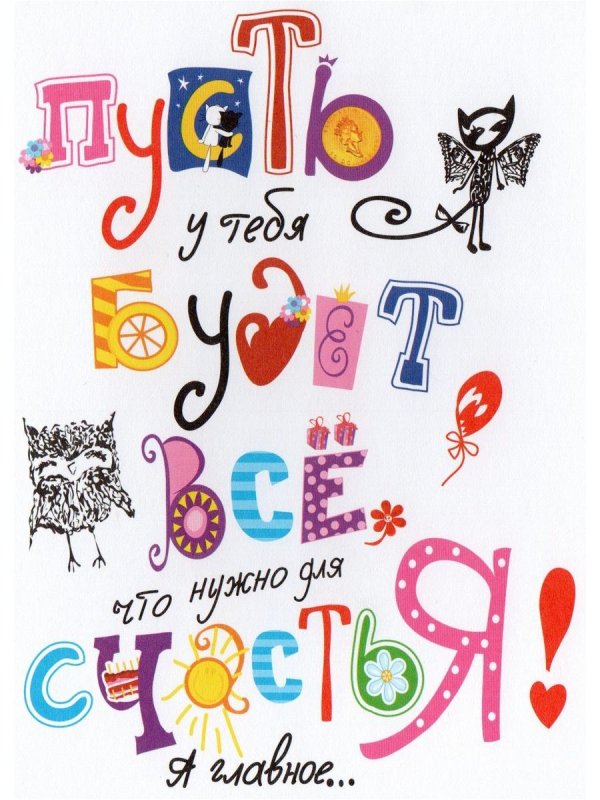 Пусть
у тебя
будет
всё,
что нужно для
счастья!
А главное...